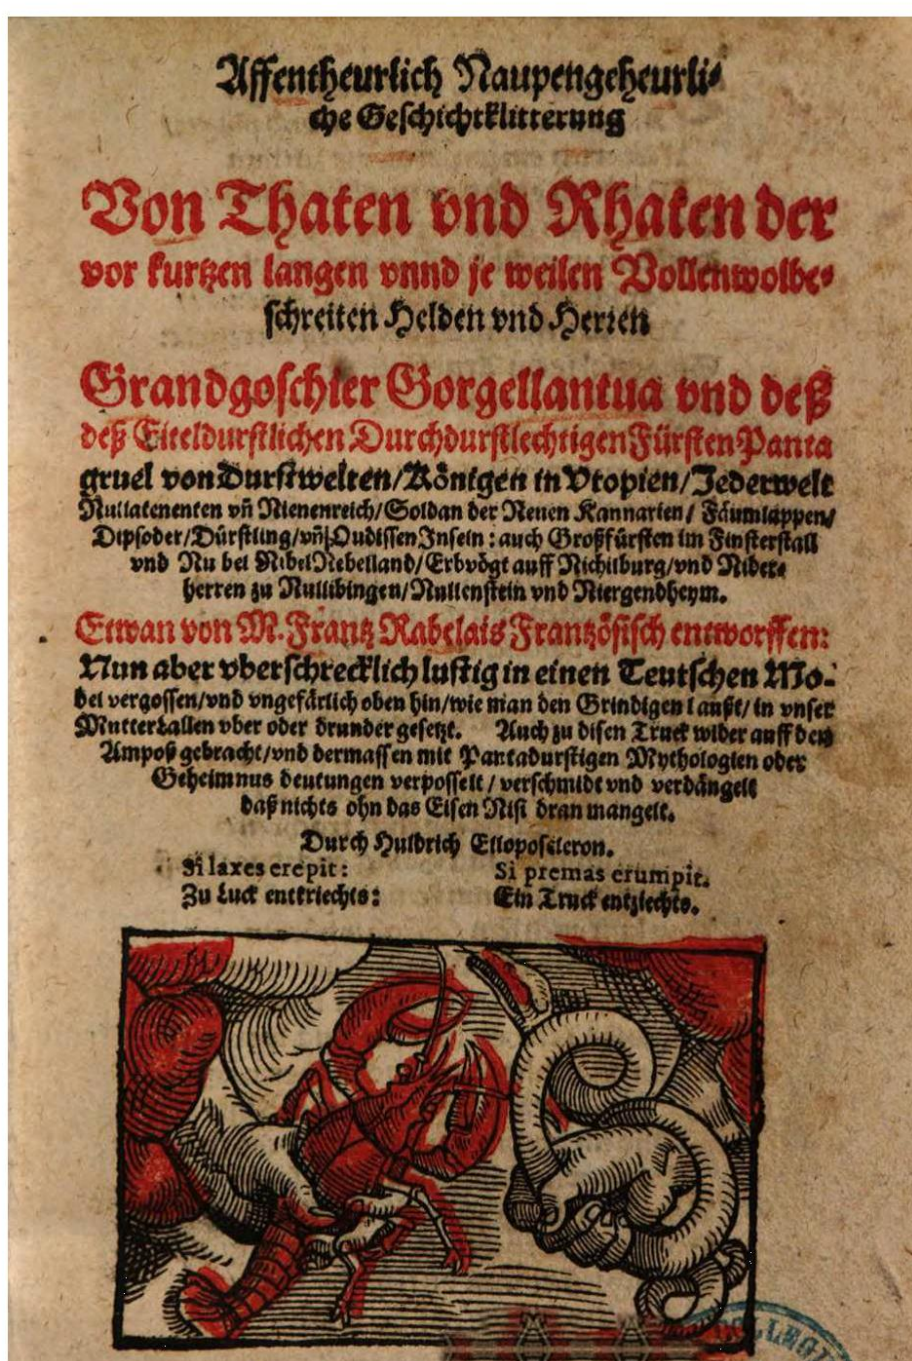 Affentheurlich Naupengeheurli⸗
che Geschichtklitterung
Von Thaten vnd Rhaten der
vor kurtzen langen vnnd je weilen Vollenwolbe⸗
schreiten Helden vnd Herren
Grandgoschier Gorgellantua vnd deß
deß Eiteldurstlichen Durchdurstlechtigen Fürsten Panta
gruel von Durstwelten/ Königen in Vtopien/ Jederwelt
Nullatenenten vñ Nienenreich/ Soldan der Neuen Kannarien/ Fäumlappen/
Dipsoder/ Dürstling/ vñ Oudissen Inseln: auch Großfürsten im Finsterstall
vnd Nu bel NibelNebelland/ Erbvögt auff Nichilburg/ vnd Nider⸗
herren zu Nullibingen/ Nullenstein vnd Niergendheym.
Etwan von M. Frantz Rabelais Frantzösisch entworffen:
Nun aber vberschrecklich lustig in einen Teutschen Mo⸗
del vergossen/ vnd vngefärlich oben hin/ wie man den Grindigen laußt/ in vnser
MutterLallen vber oder drunder gesetzt. Auch zu disen Truck wider auff den
Ampoß gebracht/ vnd dermassen mit Pantadurstigen Mythologien oder
Geheimnus deutungen verposselt/ verschmidt vnd verdängelt
daß nichts ohn das Eisen Nisi dran mangelt.
Durch Huldrich Elloposcleron.
Si laxes erepit: Si premas erumpit.
Zu Luck entkriechts: Ein Truck entziechts.